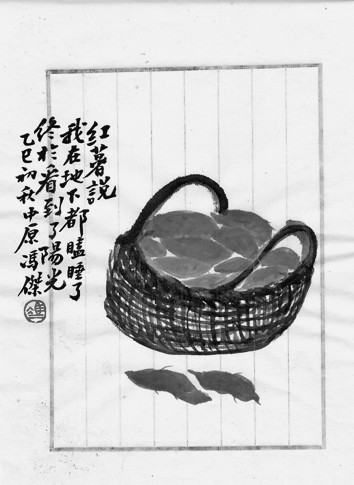 红薯說
我在地下都瞌睡了
终於看到了陽光
乙巳初秋中原馮傑